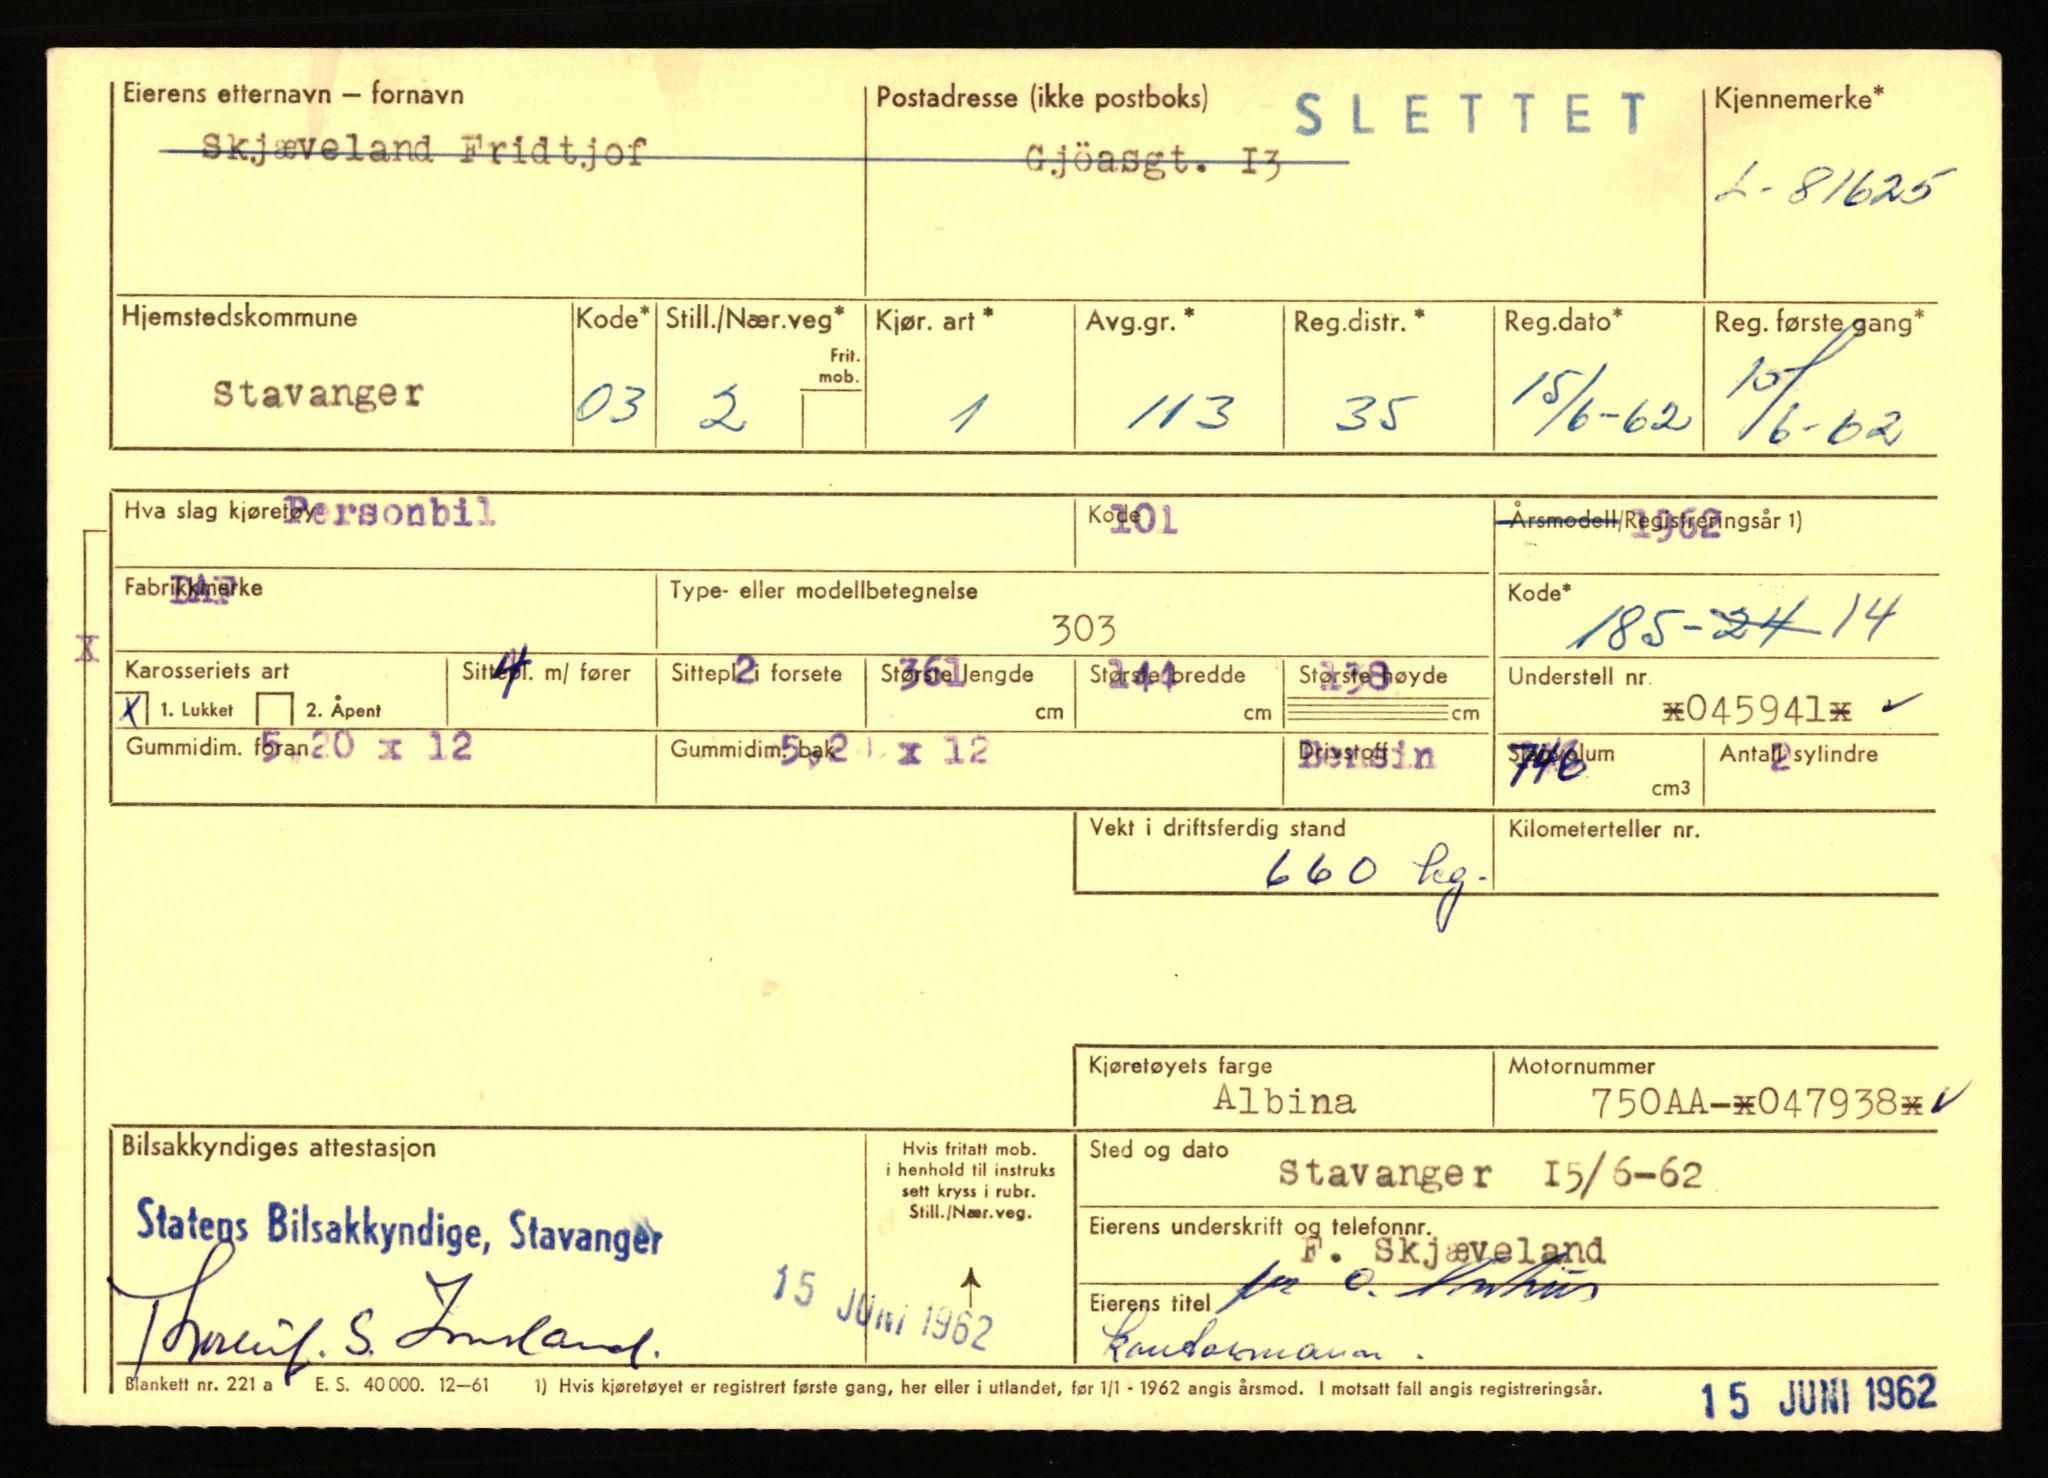 Eierens etternavn – fornavn
Postadresse (ikke postboks)
SLETTET
Kjennemerke*
Skjæveland Fridtjof
Gjöasgt. I3
L-81625
Hjemstedskommune
Kode*
Still./Nær.veg*
Frit. mob.
Kjør. art*
Avg.gr.*
Reg.distr.*
Reg.dato*
Reg. første gang*
Stavanger
03
2
1
113
35
15/6-62
15/6-62
Hva slag kjøretøy
Personbil
Kode
101
Årsmodell/Registreringsår 1)
1962
Fabrikkmerke
DAF
Type- eller modellbetegnelse
303
Kode*
185-24 14
X
Karosseriets art
X 1. Lukket
2. Åpent
Sittepl. m/ fører
4
Sittepl. i forsete
2
Største lengde
361
cm
Største bredde
144
cm
Største høyde
138
cm
Understell nr.
*045941*
Gummidim. foran
5,20 x 12
Gummidim. bak
5,20 x 12
Drivstoff
Bensin
Slagvolum
746
cm3
Antall sylindre
2
Vekt i driftsferdig stand
660 kg.
Kilometerteller nr.
Kjøretøyets farge
Albina
Motornummer
750AA-*047938*
Bilsakkyndiges attestasjon
Hvis fritatt mob.
i henhold til instruks
sett kryss i rubr.
Still./Nær.veg.
Sted og dato
Stavanger I5/6-62
Statens Bilsakkyndige, Stavanger
Eierens underskrift og telefonnr.
F. Skjæveland
15 JUNI 1962
S.
Eierens titel
Kontormann.
Blankett nr. 221 a E. S. 40 000. 12–61 1) Hvis kjøretøyet er registrert første gang, her eller i utlandet, før 1/1 - 1962 angis årsmod. I motsatt fall angis registreringsår.
15 JUNI 1962